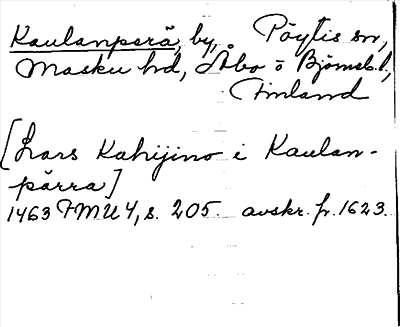 Kaulanperä, by, Pöytis sn,
Masku hd, Åbo o Björneb. l,
Finland
[Lars Kahijino i Kaulan-
pärra]
1463 FMU 4, s. 205. avskr. fr. 1623.